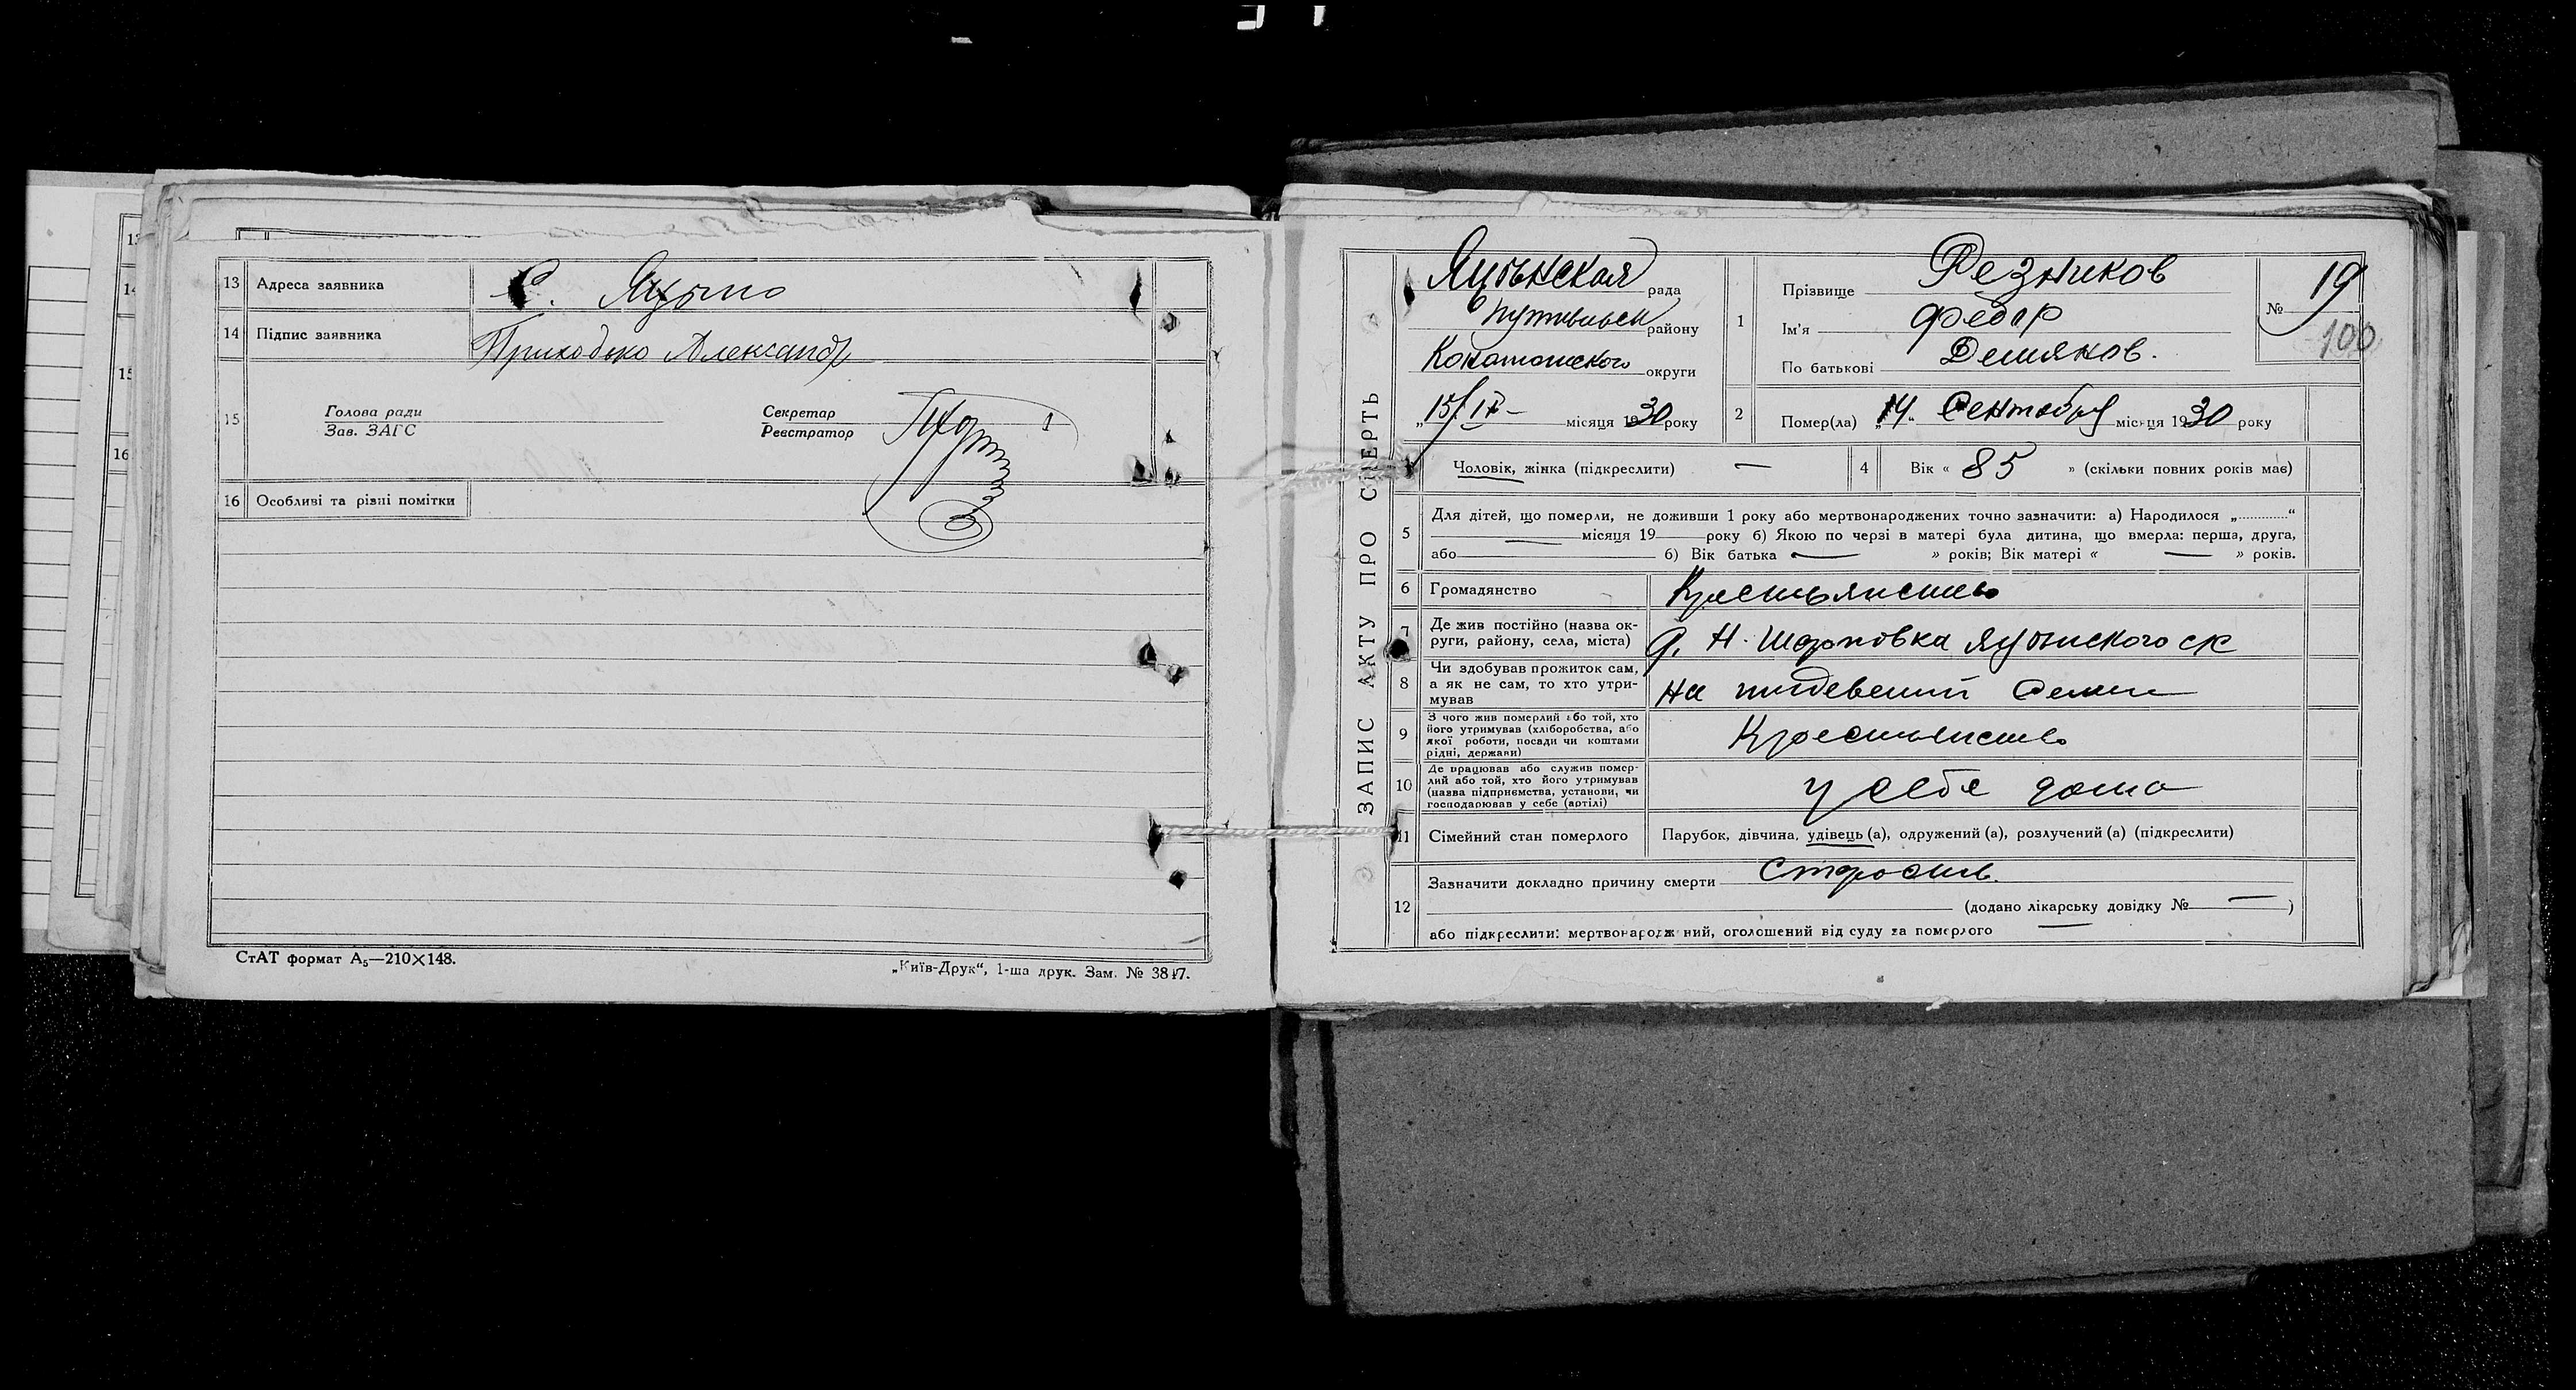 13 Адреса заявника С. Яцыно
14 Підпис заявника Приходько Александр
15 Голова ради
Зав. ЗАГС
Секретар
Реєстратор
16 Особливі та різні помітки
СтАТ формат А₅—210×148.
„Київ-Друк“, 1-ша друк. Зам. № 3817.
ЗАПИС АКТУ ПРО СМЕРТЬ
Яцынская рада
Путивльск району
Конотопского округи
„15/IX– місяця 1930 року
1 Прізвище Резников
Ім'я Федор
По батькові Демянов.
№ 19
100
2 Помер(ла) „14“ Сентября місяця 1930 року
Чоловік, жінка (підкреслити) —
4 Вік « 85 » (скільки повних років має)
5 Для дітей, що померли, не доживши 1 року або мертвонароджених точно зазначити: а) Народилося „............“
місяця 19 року б) Якою по черзі в матері була дитина, що вмерла: перша, друга,
або б) Вік батька — » років; Вік матері « — » років.
6 Громадянство Крестьянство
7 Де жив постійно (назва ок-
руги, району, села, міста) д. Н. Шарповка Яцынского ск
8 Чи здобував прожиток сам,
а як не сам, то хто утри-
мував На иждевении Семи
9 З чого жив померлий або той, хто
його утримував (хліборобства, або
якої роботи, посади чи коштами
рідні, держави) Крестьянство
10 Де працював або служив помер-
лий або той, хто його утримував
(назва підприємства, установи, чи
господарював у себе (артілі) у себя дома
11 Сімейний стан померлого Парубок, дівчина, удівець (а), одружений (а), розлучений (а) (підкреслити)
12 Зазначити докладно причину смерти Старость.
(додано лікарську довідку № — )
або підкреслити: мертвонароджений, оголошений від суду за померлого —